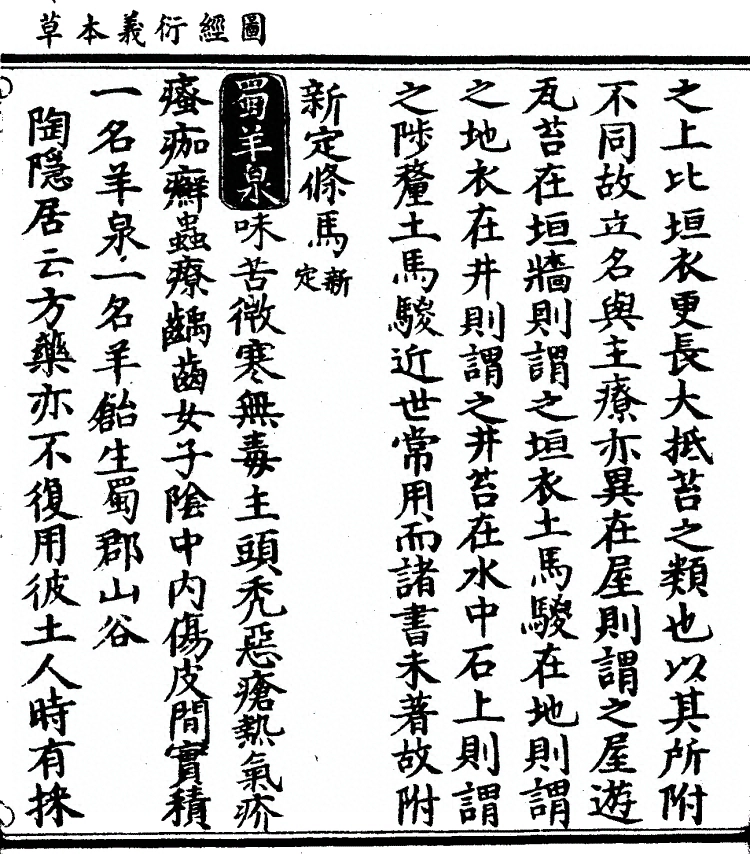 圖經衍義本草
之上比垣衣更長大抵苔之類也以其所附
不同故立名與主療亦異在屋則謂之屋遊
瓦苔在垣牆則謂之垣衣土馬騣在地則謂
之地衣在井則謂之井苔在水中石上則謂
之陟釐土馬騣近世常用而諸書未著故附
新定條馬新定
蜀羊泉味苦微寒無毒主頭禿惡瘡熱氣疥
瘙痂癬蟲療齲齒女子陰中內傷皮間實積
一名羊泉一名羊飴生蜀郡山谷
陶隱居云方藥亦不復用彼土人時有採